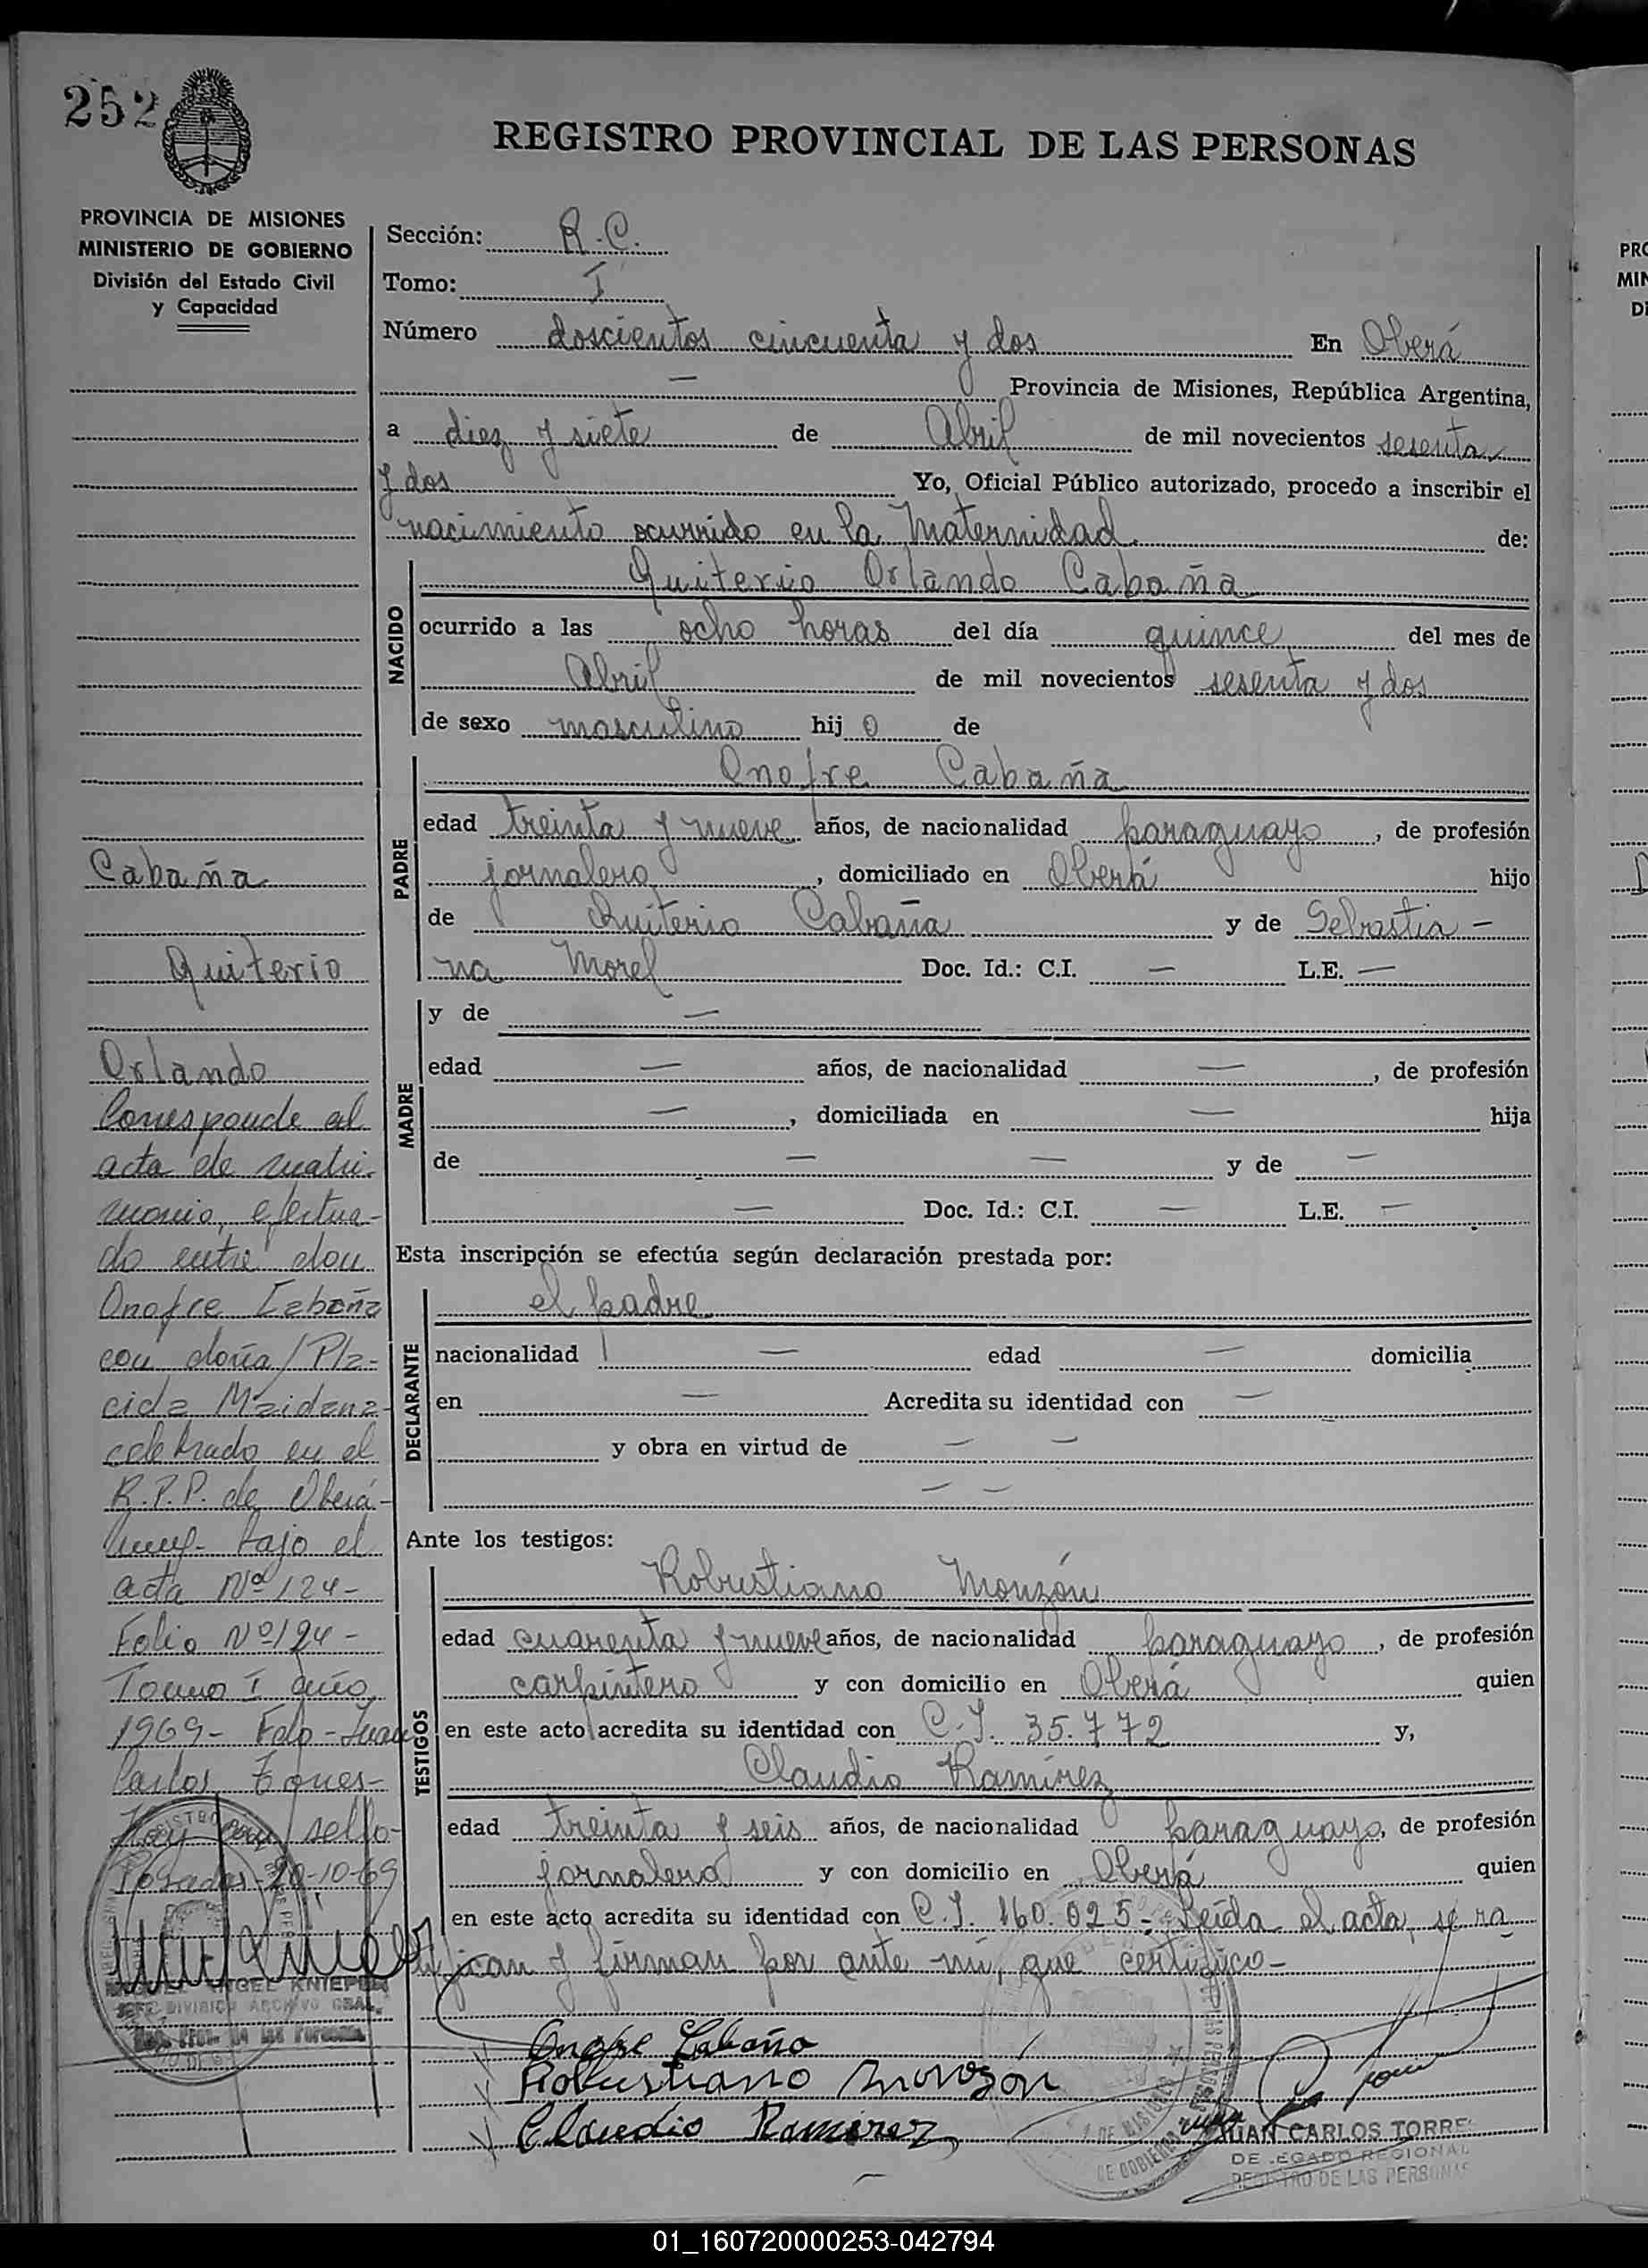 252
REGISTRO PROVINCIAL DE LAS PERSONAS
PROVINCIA DE MISIONES
MINISTERIO DE GOBIERNO
División del Estado Civil
y Capacidad
Sección: R.C.
Tomo: I
Número doscientos cincuenta y dos En Oberá
— Provincia de Misiones, República Argentina,
a diez y siete de Abril de mil novecientos sesenta
y dos Yo, Oficial Público autorizado, procedo a inscribir el
nacimiento ocurrido en la Maternidad de:
NACIDO
Quiterio Orlando Cabaña
ocurrido a las ocho horas del día quince del mes de
Abril de mil novecientos sesenta y dos
de sexo masculino hij o de
PADRE
Onofre Cabaña
edad treinta y nueve años, de nacionalidad paraguayo, de profesión
jornalero, domiciliado en Oberá hijo
de Quiterio Cabaña y de Sebastia-
na Morel Doc. Id.: C.I. — L.E. —
MADRE
y de —
edad — años, de nacionalidad —, de profesión
—, domiciliada en — hija
de — — y de —
— Doc. Id.: C.I. — L.E. —
Esta inscripción se efectúa según declaración prestada por:
DECLARANTE
el padre
nacionalidad — edad — domicilia
en — Acredita su identidad con —
y obra en virtud de — —
— —
Ante los testigos:
TESTIGOS
Robustiano Monzón
edad cuarenta y nueve años, de nacionalidad paraguayo, de profesión
carpintero y con domicilio en Oberá quien
en este acto acredita su identidad con C.I. 35.772 y,
Claudio Ramírez
edad treinta y seis años, de nacionalidad paraguayo, de profesión
jornalero y con domicilio en Oberá quien
en este acto acredita su identidad con C.I. 160.025- Leída el acta, se ra
tifican y firman por ante mi, que certifico-
Onofre Cabaña
Robustiano Monzón
Claudio Ramirez
JUAN CARLOS TORRE
DELEGADO REGIONAL
REGISTRO DE LAS PERSONAS
Cabaña
Quiterio
Orlando
Corresponde al
acta de matri-
monio, efectua-
do entre don
Onofre Cabaña
con doña Pla-
cida Maidana
celebrado en el
R.P.P. de Oberá-
bajo el
acta Nº 124-
Folio Nº 124-
Tomo I año
1969- Fdo- Juan
Carlos Torres-
Hay un sello-
Posadas-20-10-69
ANGEL KNIEPER
JEFE DIVISION ARCHIVO GRAL.
Reg. Prov. de las Personas
PRO
MIN
01_160720000253-042794